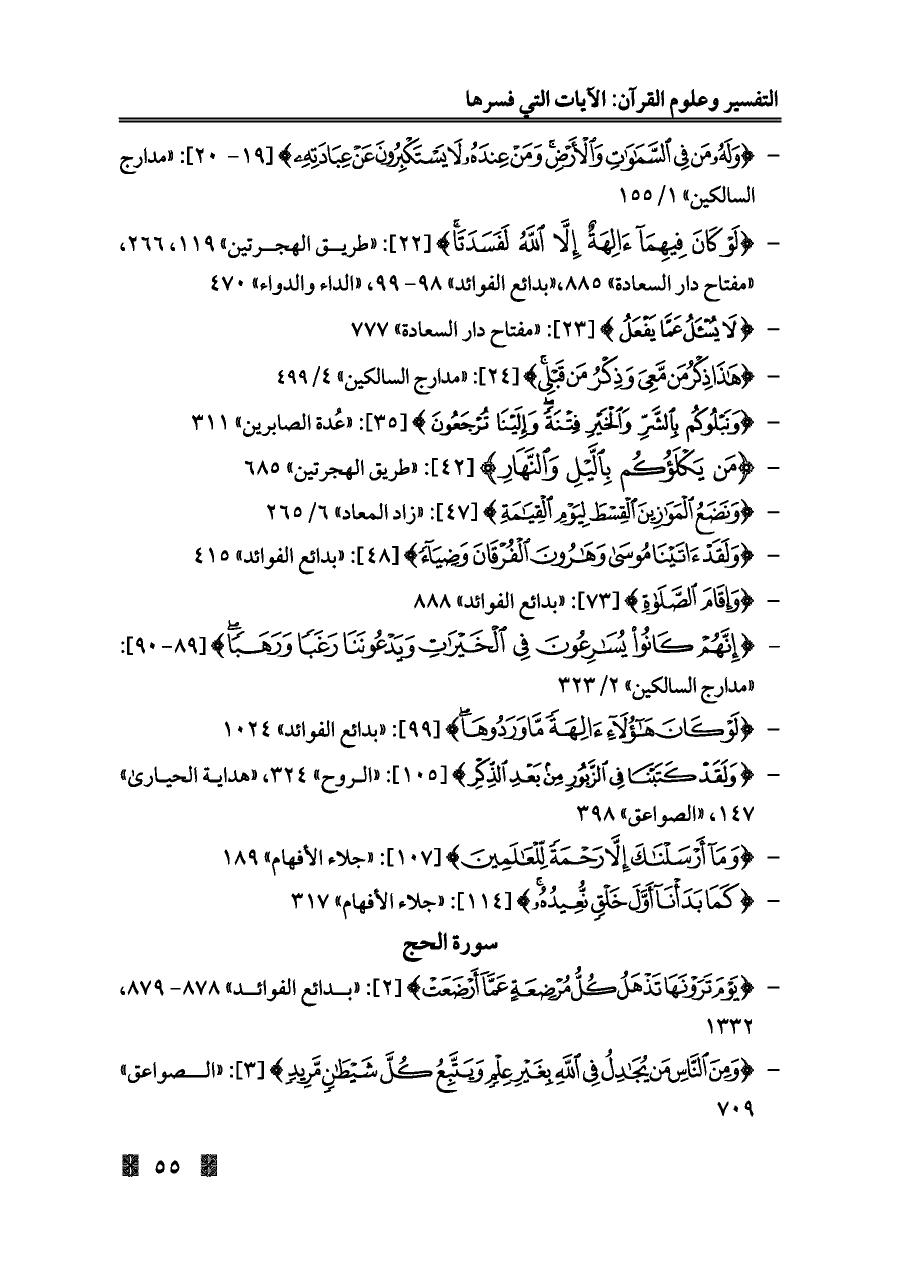 التفسير وعلوم القرآن: الآيات التي فسرها
- ﴿وَلَهُۥ مَن فِي ٱلسَّمَٰوَٰتِ وَٱلۡأَرۡضِۚ وَمَنۡ عِندَهُۥ لَا يَسۡتَكۡبِرُونَ عَنۡ عِبَادَتِهِۦ﴾ [١٩- ٢٠]: «مدارج
السالكين» ١/ ١٥٥
- ﴿لَوۡ كَانَ فِيهِمَآ ءَالِهَةٌ إِلَّا ٱللَّهُ لَفَسَدَتَاۚ﴾ [٢٢]: «طريق الهجرتين» ١١٩، ٢٦٦،
«مفتاح دار السعادة» ٨٨٥،«بدائع الفوائد» ٩٨- ٩٩، «الداء والدواء» ٤٧٠
- ﴿لَا يُسۡـَٔلُ عَمَّا يَفۡعَلُ﴾ [٢٣]: «مفتاح دار السعادة» ٧٧٧
- ﴿هَٰذَا ذِكۡرُ مَن مَّعِيَ وَذِكۡرُ مَن قَبۡلِيۚ﴾ [٢٤]: «مدارج السالكين» ٤/ ٤٩٩
- ﴿وَنَبۡلُوكُم بِٱلشَّرِّ وَٱلۡخَيۡرِ فِتۡنَةٗۖ وَإِلَيۡنَا تُرۡجَعُونَ﴾ [٣٥]: «عُدة الصابرين» ٣١١
- ﴿مَن يَكۡلَؤُكُم بِٱلَّيۡلِ وَٱلنَّهَارِ﴾ [٤٢]: «طريق الهجرتين» ٦٨٥
- ﴿وَنَضَعُ ٱلۡمَوَٰزِينَ ٱلۡقِسۡطَ لِيَوۡمِ ٱلۡقِيَٰمَةِ﴾ [٤٧]: «زاد المعاد» ٦/ ٢٦٥
- ﴿وَلَقَدۡ ءَاتَيۡنَا مُوسَىٰ وَهَٰرُونَ ٱلۡفُرۡقَانَ وَضِيَآءٗ﴾ [٤٨]: «بدائع الفوائد» ٤١٥
- ﴿وَإِقَامَ ٱلصَّلَوٰةِ﴾ [٧٣]: «بدائع الفوائد» ٨٨٨
- ﴿إِنَّهُمۡ كَانُواْ يُسَٰرِعُونَ فِي ٱلۡخَيۡرَٰتِ وَيَدۡعُونَنَا رَغَبٗا وَرَهَبٗاۖ﴾ [٨٩- ٩٠]:
«مدارج السالكين» ٢/ ٣٢٣
- ﴿لَوۡ كَانَ هَٰٓؤُلَآءِ ءَالِهَةٗ مَّا وَرَدُوهَاۖ﴾ [٩٩]: «بدائع الفوائد» ١٠٢٤
- ﴿وَلَقَدۡ كَتَبۡنَا فِي ٱلزَّبُورِ مِنۢ بَعۡدِ ٱلذِّكۡرِ﴾ [١٠٥]: «الروح» ٣٢٤، «هداية الحيارىٰ»
١٤٧، «الصواعق» ٣٩٨
- ﴿وَمَآ أَرۡسَلۡنَٰكَ إِلَّا رَحۡمَةٗ لِّلۡعَٰلَمِينَ﴾ [١٠٧]: «جلاء الأفهام» ١٨٩
- ﴿كَمَا بَدَأۡنَآ أَوَّلَ خَلۡقٖ نُّعِيدُهُۥۚ﴾ [١١٤]: «جلاء الأفهام» ٣١٧
سورة الحج
- ﴿يَوۡمَ تَرَوۡنَهَا تَذۡهَلُ كُلُّ مُرۡضِعَةٍ عَمَّآ أَرۡضَعَتۡ﴾ [٢]: «بدائع الفوائد» ٨٧٨- ٨٧٩،
١٣٣٢
- ﴿وَمِنَ ٱلنَّاسِ مَن يُجَٰدِلُ فِي ٱللَّهِ بِغَيۡرِ عِلۡمٖ وَيَتَّبِعُ كُلَّ شَيۡطَٰنٖ مَّرِيدٖ﴾ [٣]: «الصواعق»
٧٠٩
٥٥